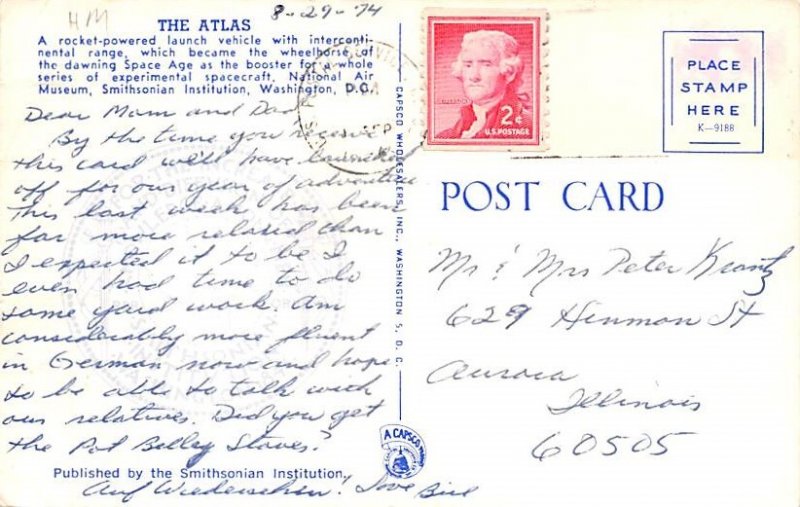 HM
8-29-74
THE ATLAS
A rocket-powered launch vehicle with interconti-
nental range, which became the wheelhorse of
the dawning Space Age as the booster for a whole
series of experimental spacecraft, National Air
Museum, Smithsonian Institution, Washington, D.C.
Dear Mom and Dad
By the time you receive
this card we'll have launched
off for our year of adventure
This last week has been
far more relaxed than
I expected it to be I
even had time to do
some yard work. Am
considerably more fluent
in German now and hope
to be able to talk with
our relatives. Did you get
the Pot Belley Stoves?
Published by the Smithsonian Institution,
Auf Wiedersehen! Love Bill
CAPSCO WHOLESALERS, INC., WASHINGTON 5, D. C.
A CAPSCO
SEP
2¢
U.S. POSTAGE
PLACE
STAMP
HERE
K-9188
POST CARD
Mr & Mrs Peter Krantz
629 Hinman St
Aurora
Illinois
60505